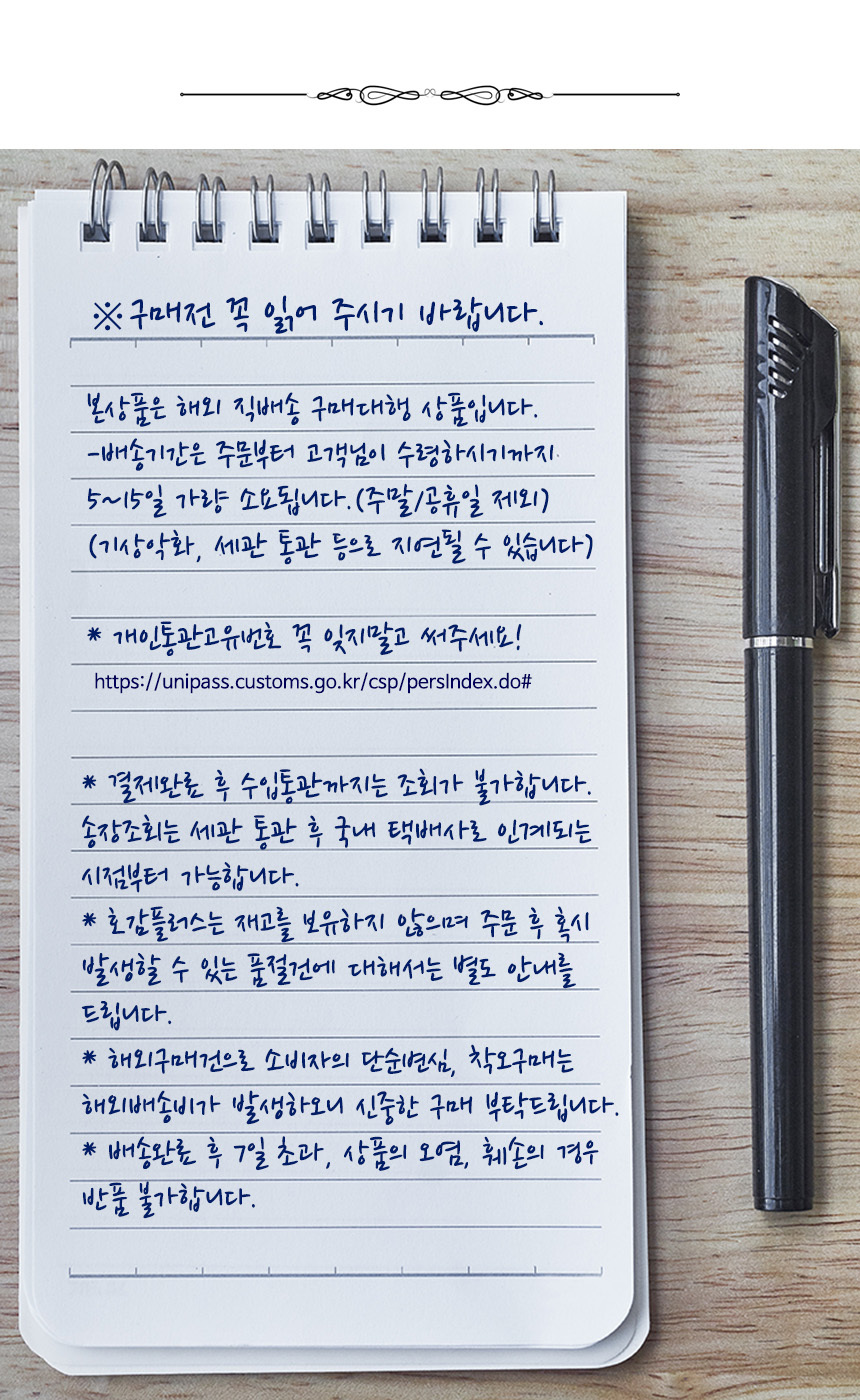 ※구매전 꼭 읽어 주시기 바랍니다.
본상품은 해외 직배송 구매대행 상품입니다.
-배송기간은 주문부터 고객님이 수령하시기까지
5~15일 가량 소요됩니다.(주말/공휴일 제외)
(기상악화, 세관 통관 등으로 지연될 수 있습니다)
* 개인통관고유번호 꼭 잊지말고 써주세요!
https://unipass.customs.go.kr/csp/persIndex.do#
* 결제완료 후 수입통관까지는 조회가 불가합니다.
송장조회는 세관 통관 후 국내 택배사로 인계되는
시점부터 가능합니다.
* 호감플러스는 재고를 보유하지 않으며 주문 후 혹시
발생할 수 있는 품절건에 대해서는 별도 안내를
드립니다.
* 해외구매건으로 소비자의 단순변심, 착오구매는
해외배송비가 발생하오니 신중한 구매 부탁드립니다.
* 배송완료 후 7일 초과, 상품의 오염, 훼손의 경우
반품 불가합니다.